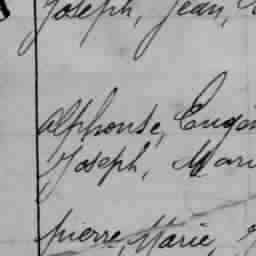 Joseph, Jean,
Alphonse, Eugèn
Joseph, Mari
pierre, Marie,